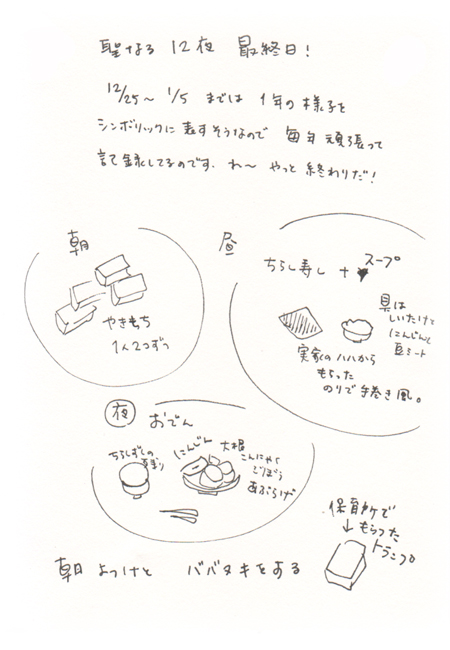 聖なる 12夜 最終日!
12/25~ 1/5 までは 1年の様子を
シンボリックに表すそうなので 毎年頑張って
記録してるのです. わ~ やっと終わりだ!
朝
やきもち
1人2コずつ
昼
ちらし寿し + スープ
具は
しいたけと
にんじんと
豆ミート
実家のハハから
もらった
のりで手巻き風。
夜 おでん
ちらしずしの
にんじん
大根
こんにゃく
ごぼう
あぶらげ
保育所で
↓ もらった
トランプ
朝 よっけと ババヌキをする